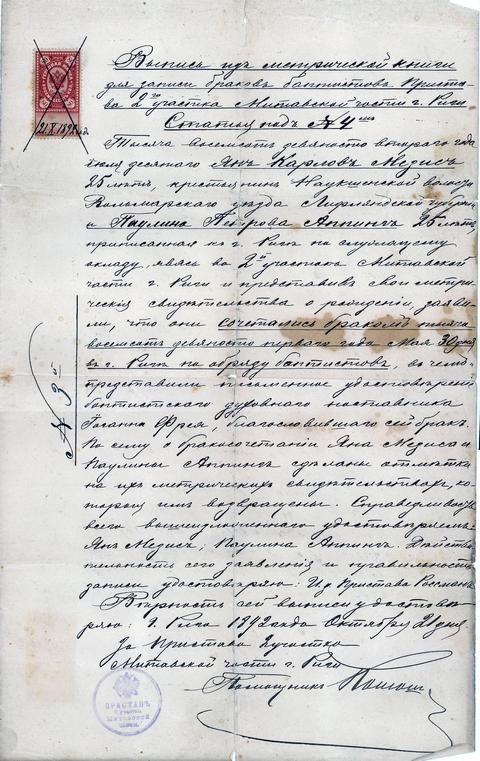 Выпись изъ метрической книги
для записи браковъ баптистовъ Приста-
ва 2го участка Митавской части г. Риги
Статья подъ №4
21.X.1892
Тысяча восемсотъ девяносто второго года
десятаго Янъ Карловъ Медисъ
25 лѣтъ, крестьянинъ Наукшенской волости
Вольмарскаго уѣзда Лифляндской губерніи
и Паулина Петрова Аппингъ 25 лѣтъ
приписанная къ г. Ригѣ по служащему
окладу, явясь во 2й участокъ Митавской
части г. Риги и представивъ свои метри-
ческія свидѣтельства о рожденіи, заяви-
ли, что они сочетались бракомъ тысяча
восемсотъ девяносто перваго года Мая 30 дня
въ г. Ригѣ по обряду баптистовъ, въ чемъ
представили письменное удостовѣреніе
баптистскаго духовнаго наставника
Іоганна Фрея, благословившаго сей бракъ.
По сему о бракосочетаніи Яна Медиса и
Паулины Аппингъ сдѣланы отмѣтки
на ихъ метрическихъ свидѣтельствахъ, ко-
торыя имъ возвращены. Справедливость
всего вышеизложеннаго удостовѣряемъ:
Янъ Медисъ; Паулина Аппингъ. Дѣйстви-
тельность сего заявленія и правильность
записи удостовѣряю: Пристава
Вѣрность сей выписи удостовѣ-
ряю: г. Рига 1892 года Октября 21 дня.
За Пристава 2 участка
Митавской части г. Риги
Помощникъ
№ 3й
ПРИСТАВЪ
2 участка
Митавской
части